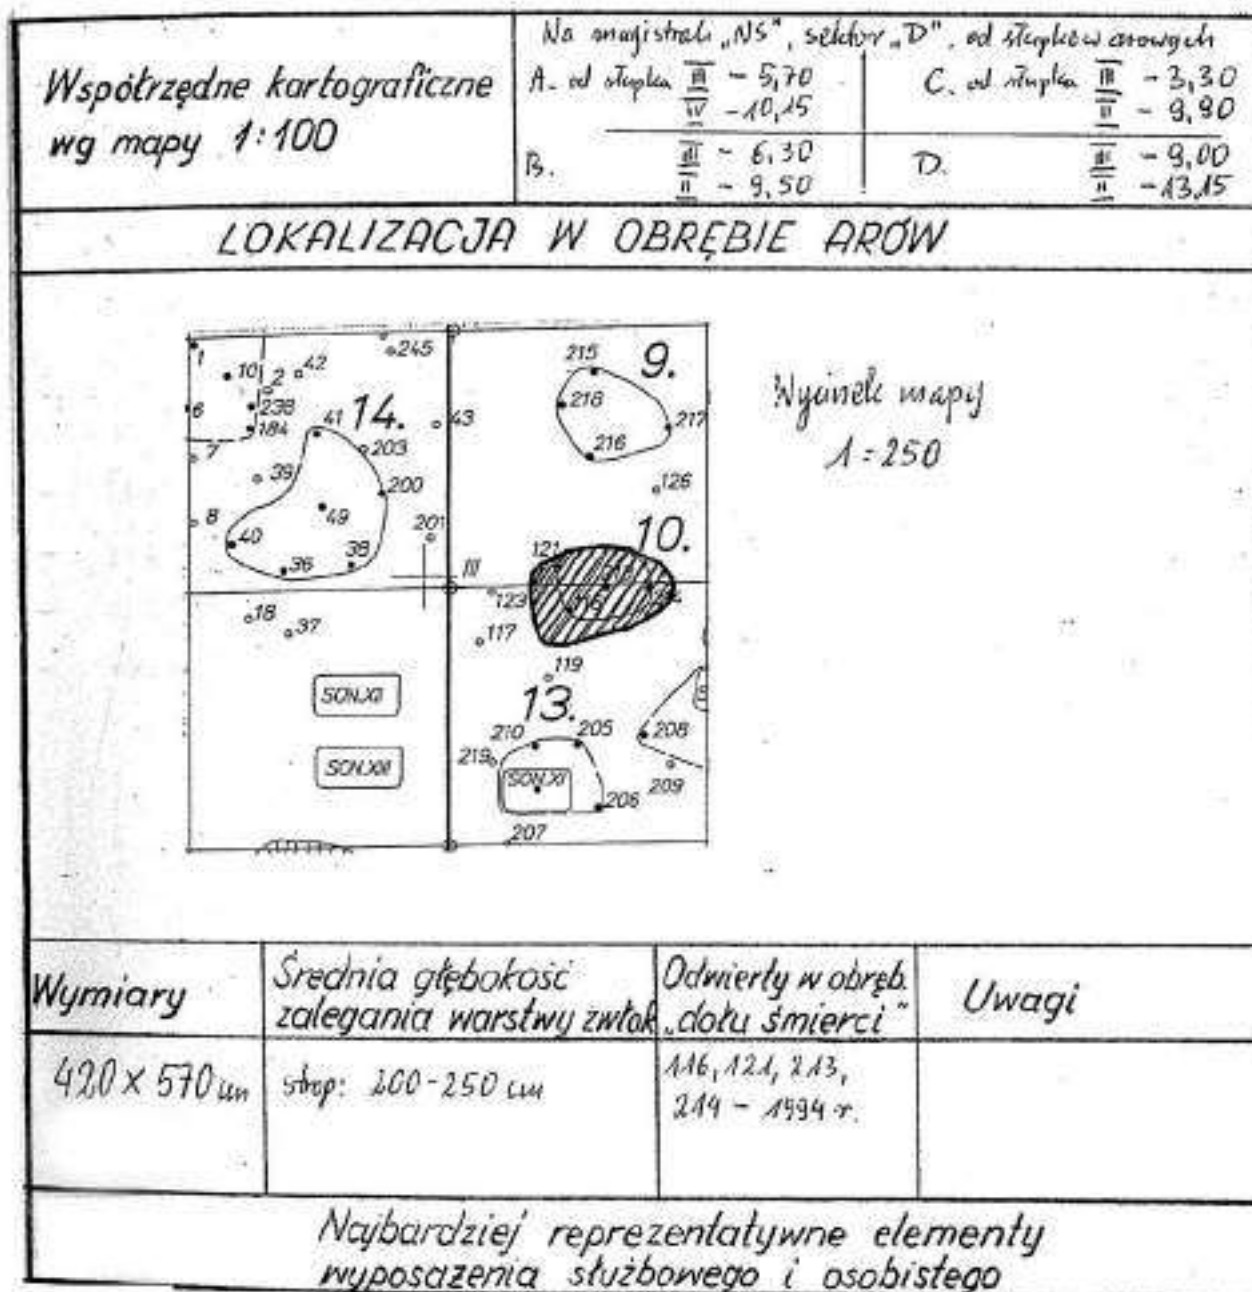 Współrzędne kartograficzne
wg mapy 1:100
Na magistrali „NS", sektor „D", od słupków arowych
A. od słupka III - 5,70
IV - 10,15
C. od słupka III - 3,30
II - 9,90
B. III - 6,30
II - 9,50
D. III - 9,00
II - 13,15
LOKALIZACJA W OBRĘBIE ARÓW
1
10
2
42
245
6
238
184
41
14.
43
7
203
39
200
8
49
40
201
36
38
III
18
37
SON.XII
SON.XIII
215
9.
218
217
216
126
10.
121
123
116
117
119
13.
210
205
219
SON.XI
206
207
208
209
Wycinek mapy
1:250
Wymiary
Średnia głębokość
zalegania warstwy zwłok
Odwierty w obręb.
„dołu śmierci"
Uwagi
420 x 570 cm
strop: 200-250 cm
116, 121, 213,
214 - 1994 r.
Najbardziej reprezentatywne elementy
wyposażenia służbowego i osobistego